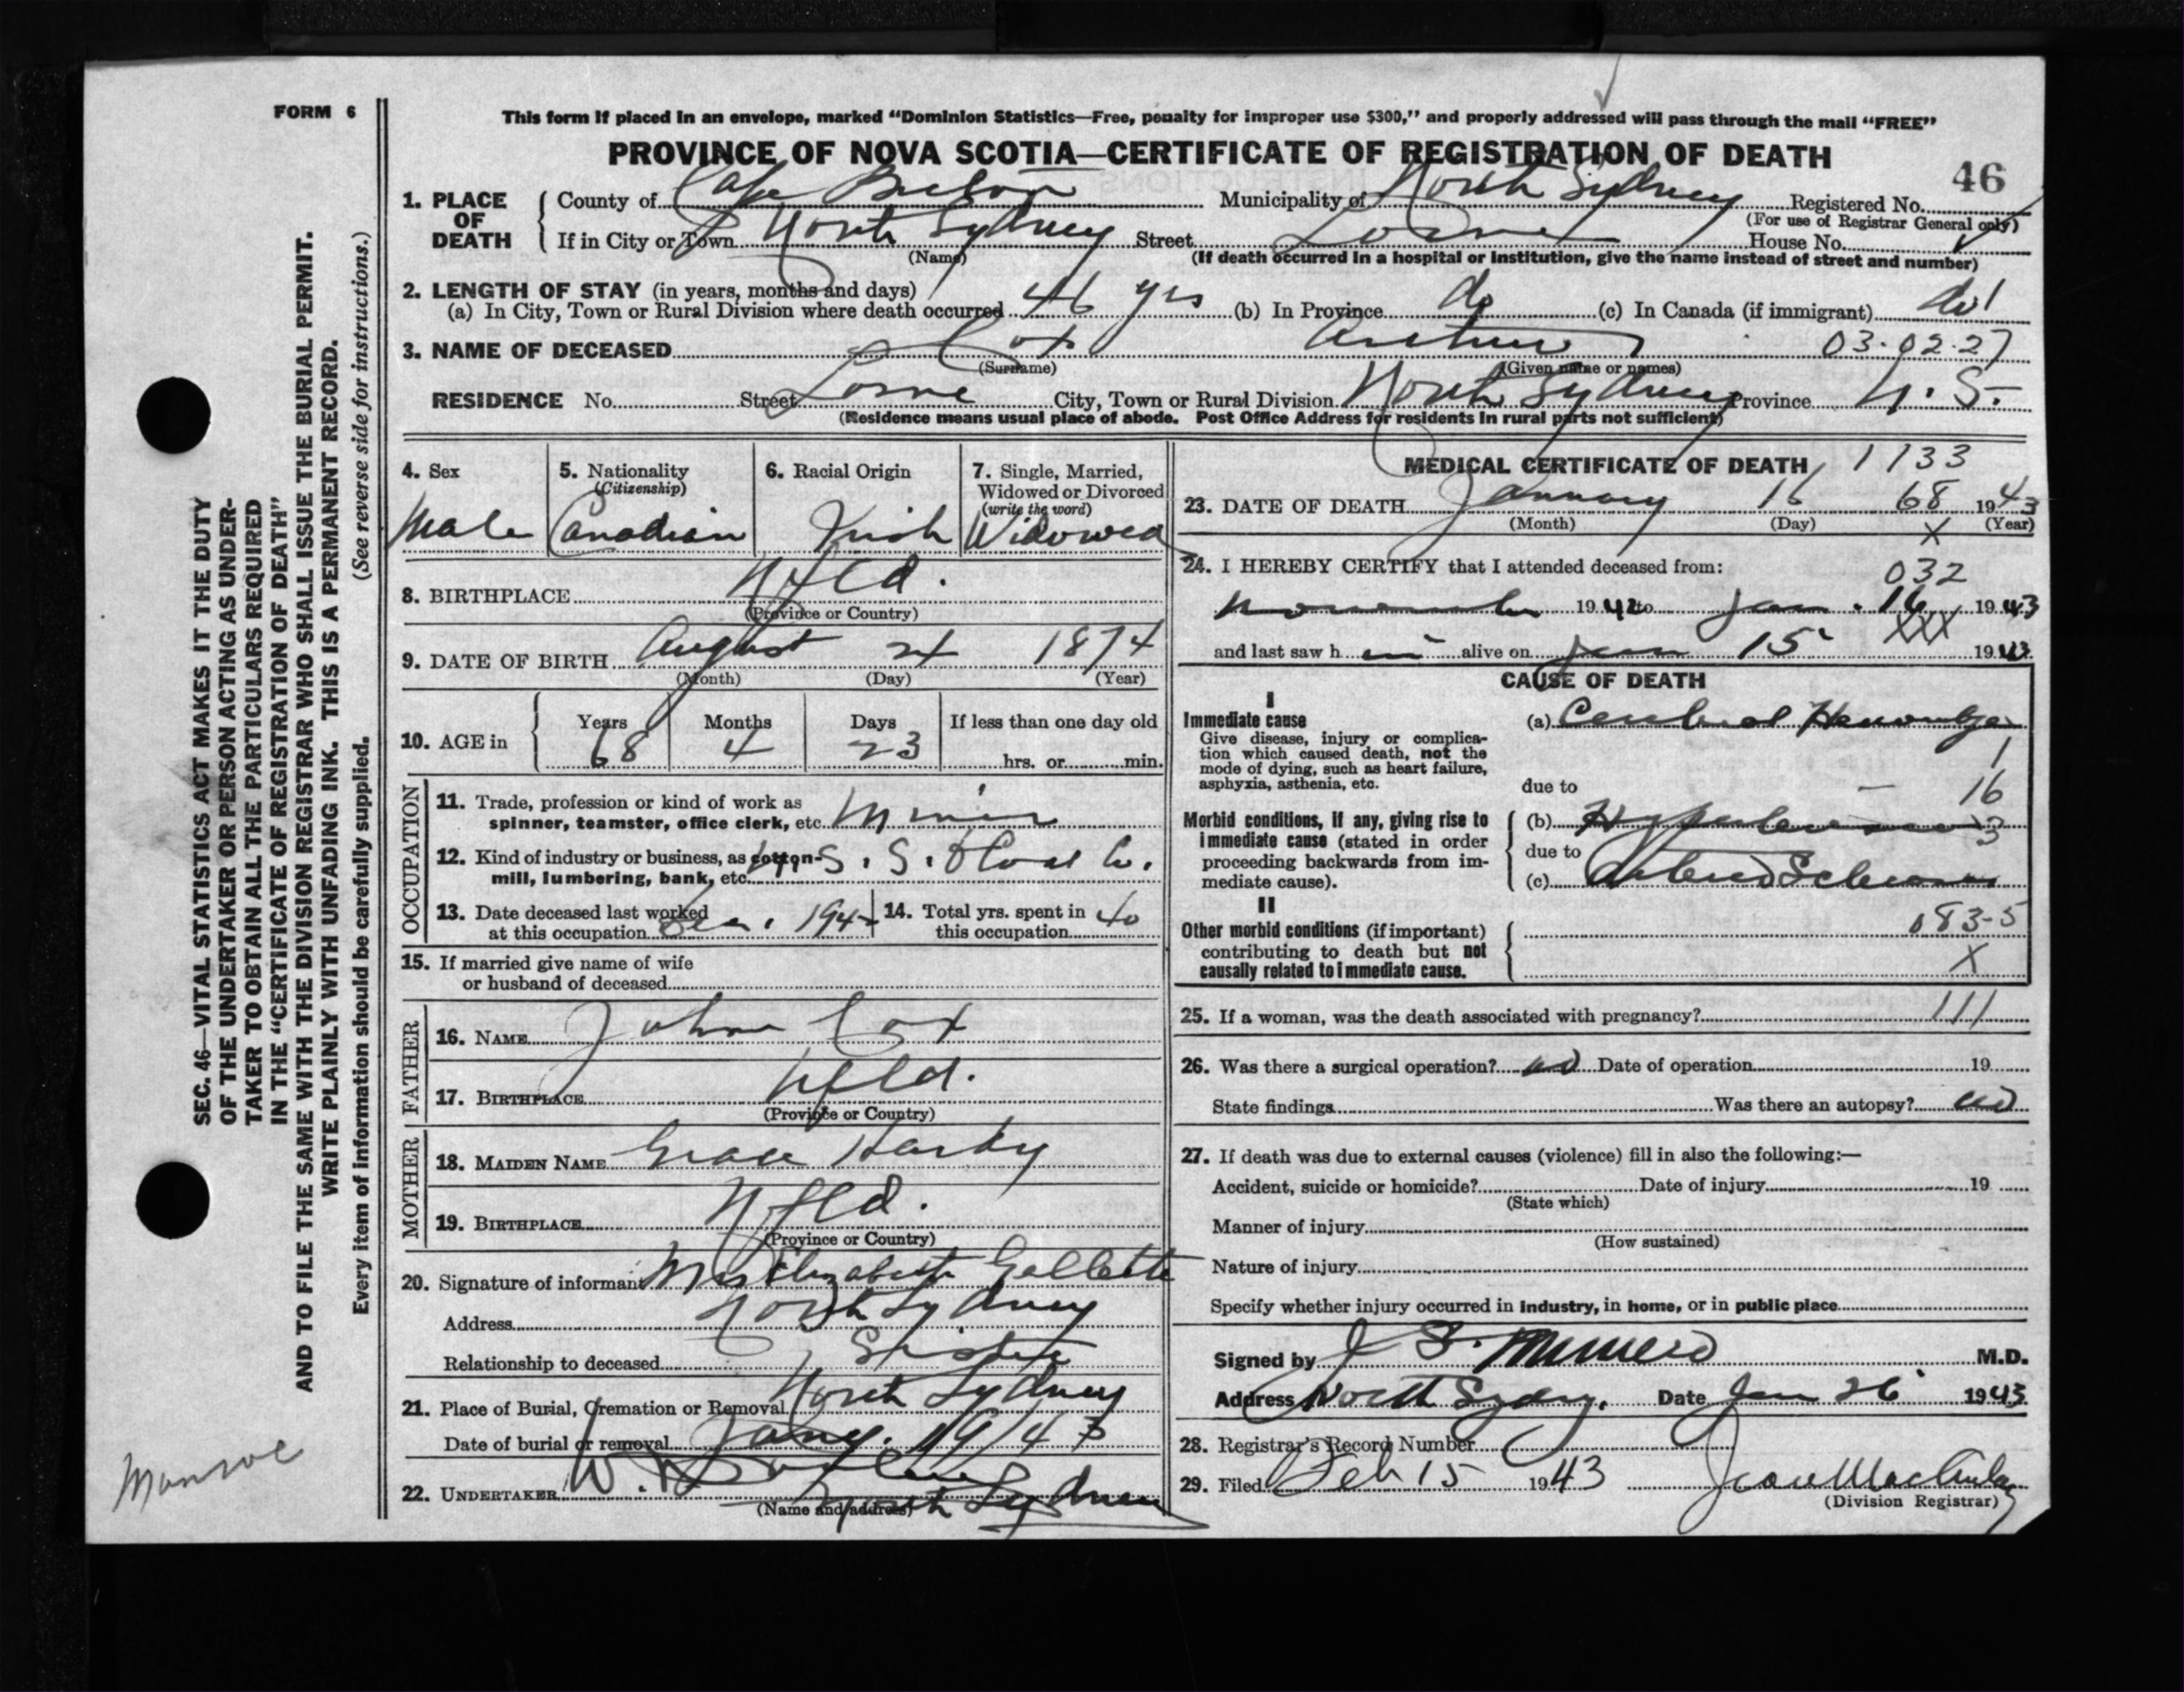 FORM 6
This form if placed in an envelope, marked "Dominion Statistics—Free, penalty for improper use $300," and properly addressed will pass through the mail "FREE"
PROVINCE OF NOVA SCOTIA—CERTIFICATE OF REGISTRATION OF DEATH
46
1. PLACE OF DEATH County of Cape Breton Municipality of North Sydney Registered No.
(For use of Registrar General only)
If in City or Town North Sydney Street Lorne House No.
(Name) (If death occurred in a hospital or institution, give the name instead of street and number)
2. LENGTH OF STAY (in years, months and days)
(a) In City, Town or Rural Division where death occurred 46 yrs (b) In Province do (c) In Canada (if immigrant) do 1
3. NAME OF DECEASED Cox Arthur 03-02-27
(Surname) (Given name or names)
RESIDENCE No. Street Lorne City, Town or Rural Division North Sydney Province N.S.
(Residence means usual place of abode. Post Office Address for residents in rural parts not sufficient)
4. Sex Male
5. Nationality (Citizenship) Canadian
6. Racial Origin Irish
7. Single, Married, Widowed or Divorced (write the word) Widowed
8. BIRTHPLACE Nfld.
(Province or Country)
9. DATE OF BIRTH August 24 1874
(Month) (Day) (Year)
10. AGE in Years 68 Months 4 Days 23 If less than one day old
hrs. or min.
OCCUPATION
11. Trade, profession or kind of work as
spinner, teamster, office clerk, etc. Miner
12. Kind of industry or business, as cotton-
mill, lumbering, bank, etc. N.S.S. & Coal Co.
13. Date deceased last worked
at this occupation Dec. 1942
14. Total yrs. spent in
this occupation 40
15. If married give name of wife
or husband of deceased
FATHER
16. NAME John Cox
17. BIRTHPLACE Nfld.
(Province or Country)
MOTHER
18. MAIDEN NAME Grace Hardy
19. BIRTHPLACE Nfld.
(Province or Country)
20. Signature of informant Mrs Elizabeth Gellette
Address North Sydney
Relationship to deceased Sister
21. Place of Burial, Cremation or Removal North Sydney
Date of burial or removal Jany. 19/43
22. UNDERTAKER W.
(Name and address) North Sydney
MEDICAL CERTIFICATE OF DEATH 1133
23. DATE OF DEATH January 16 68 1943
(Month) (Day) X (Year)
24. I HEREBY CERTIFY that I attended deceased from:
032
November 1942 to Jan. 16 1943
XXX
and last saw h im alive on Jan 15 1943
CAUSE OF DEATH
I
Immediate cause
Give disease, injury or complica-
tion which caused death, not the
mode of dying, such as heart failure,
asphyxia, asthenia, etc.
(a) Cerebral Hemorrhage
1
due to – 16
Morbid conditions, if any, giving rise to
immediate cause (stated in order
proceeding backwards from im-
mediate cause).
(b) Hypertension 3
due to
(c) Arterio Sclerosis
II
Other morbid conditions (if important)
contributing to death but not
causally related to immediate cause.
083-5
X
25. If a woman, was the death associated with pregnancy? 111
26. Was there a surgical operation? no Date of operation 19
State findings Was there an autopsy? no
27. If death was due to external causes (violence) fill in also the following:—
Accident, suicide or homicide? Date of injury 19
(State which)
Manner of injury
(How sustained)
Nature of injury
Specify whether injury occurred in industry, in home, or in public place
Signed by J S. M.D.
Address North Sydney. Date Jan 26 1943
28. Registrar's Record Number
29. Filed Feb 15 1943 Jean
(Division Registrar)
SEC. 46—VITAL STATISTICS ACT MAKES IT THE DUTY
OF THE UNDERTAKER OR PERSON ACTING AS UNDER-
TAKER TO OBTAIN ALL THE PARTICULARS REQUIRED
IN THE "CERTIFICATE OF REGISTRATION OF DEATH"
AND TO FILE THE SAME WITH THE DIVISION REGISTRAR WHO SHALL ISSUE THE BURIAL PERMIT.
WRITE PLAINLY WITH UNFADING INK. THIS IS A PERMANENT RECORD.
Every item of information should be carefully supplied. (See reverse side for instructions.)
Monroe